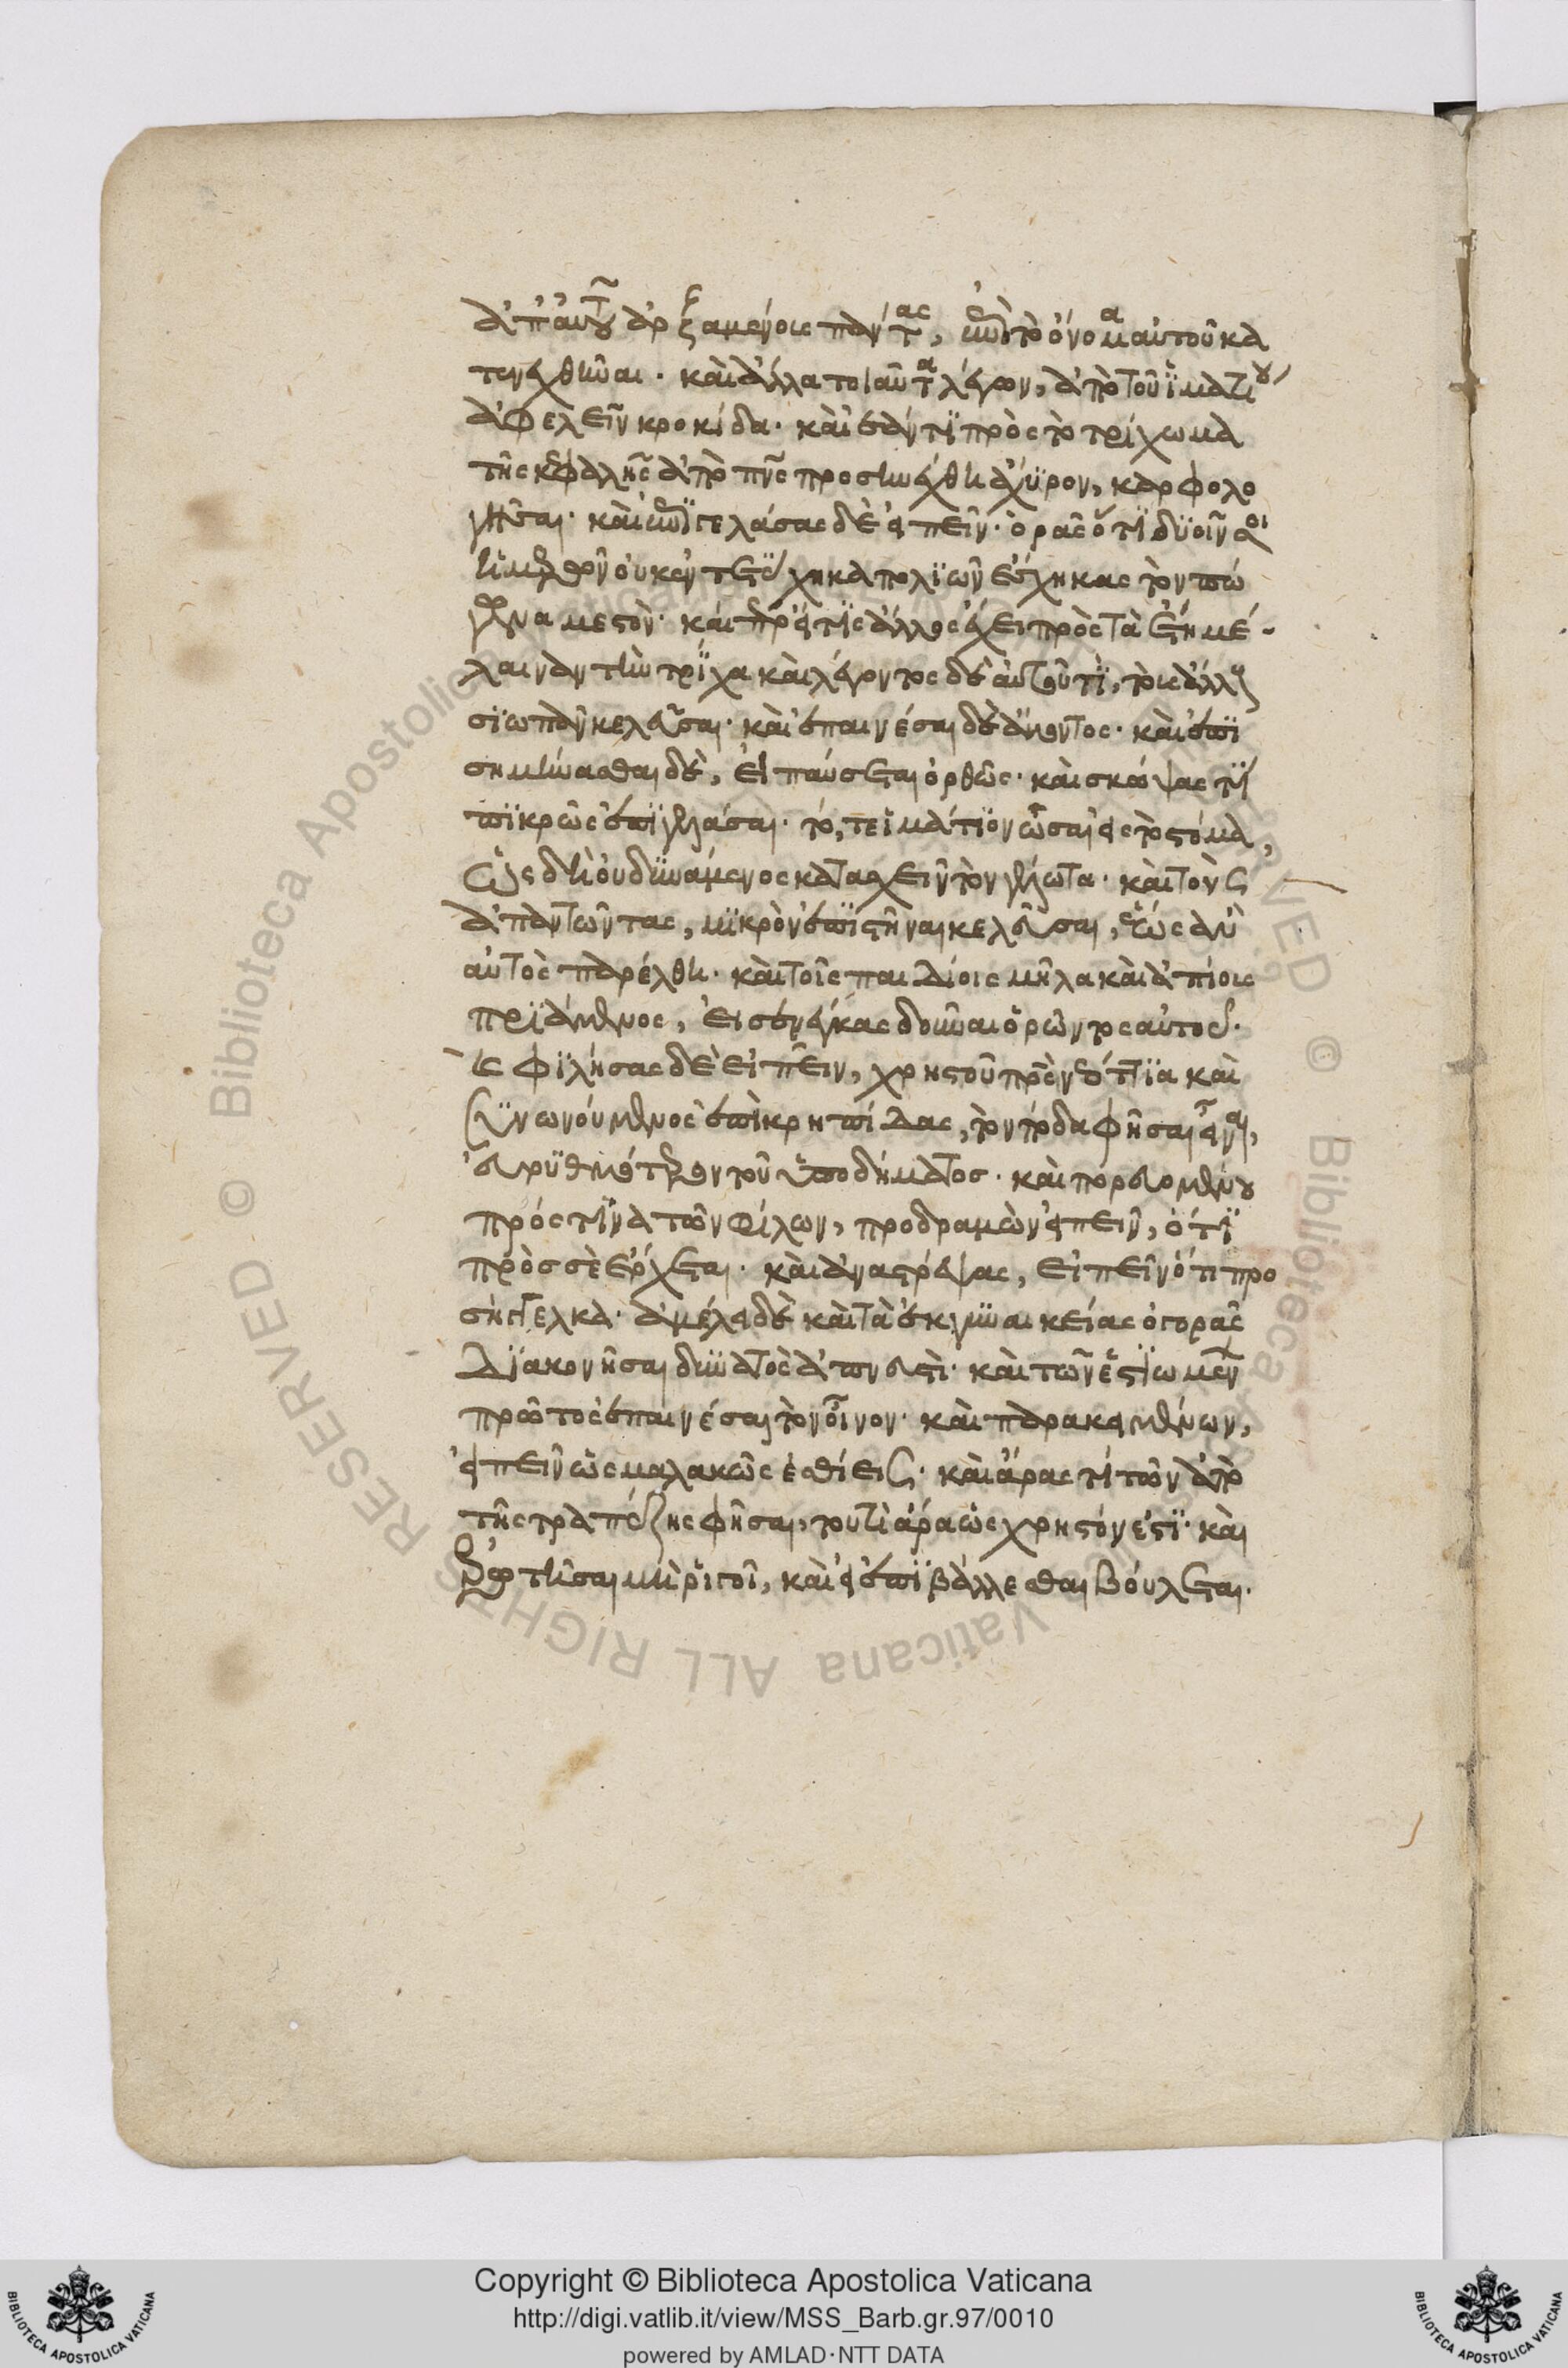 ἀπ' αὐτοῦ ἀρξαμένους πάντας, ἐπὶ τὸ ὄνομα αὐτοῦ κα
τενεχθῆναι· καὶ ἄλλα τοιαῦτα λέγων, ἀπὸ τοῦ ἱματίου
ἀφελεῖν κροκίδα· καὶ ἐάν τι πρὸς τὸ τρίχωμα
τῆς κεφαλῆς ἀπὸ πνς προσηνέχθη ἄχυρον, καρφολο
γῆσαι· καὶ ἐπιγελάσας δὲ εἰπεῖν· ὁρᾶς ὅτι δυοῖν σοι
ἡμερῶν οὐκ ἐντετύχηκα πολιῶν ἔσχηκας τὸν πώ
γωνα μεστόν· καίπερ εἴ τις ἄλλος ἔχει πρὸς τὰ ἔτη μέ
λαιναν τὴν τρίχα καὶ λέγοντος δὲ αὐτοῦ τι, τοὺς ἄλλους
σιωπᾶν κελεῦσαι· καὶ ἐπαινέσαι δὲ ἀκούοντος· καὶ ἐπι
σημήνασθαι δὲ, εἰ παύσεται ὀρθῶς· καὶ σκώψας τι
πικρῶς ἐπιγελάσαι· τό, τε ἱμάτιον ὦσαι εἰς τὸ στόμα,
ὡς δὴ οὐ δυνάμενος κατασχεῖν τὸν γέλωτα· καὶ τοὺς
ἀπαντῶντας, μικρὸν ἐπιστῆναι κελεῦσαι, ἕως ἂν
αὐτὸς παρέλθη· καὶ τοῖς παιδίοις μῆλα καὶ ἀπίους
πριάμενος, εἰσενέγκας δοῦναι ὁρῶντος αὐτοῦ·
καὶ φιλήσας δὲ εἰπεῖν, χρηστοῦ πρς νεόττια καὶ
συνωνούμενος ἐπὶ κρηπῖδας, τὸν πόδα φῆσαι εἶναι,
εὐρυθμότερον τοῦ ὑποδήματος· καὶ πορευομένου
πρός τινα τῶν φίλων, προδραμὼν εἰπεῖν, ὅτι
πρὸς σὲ ἔρχεται· καὶ ἀναστρέψας, εἰπεῖν ὅτι προ
σήγγελκα· ἀμέλει δὲ καὶ τὰ ἐκ γυναικείας ἀγορᾶς
διακονῆσαι δυνατὸς ἀπνευστί· καὶ τῶν ἑστιωμένων
πρῶτος ἐπαινέσαι τὸν οἶνον· καὶ παρακειμένων,
εἰπεῖν ὡς μαλακῶς ἐσθίεις· καὶ ἄρας τι τῶν ἀπὸ
τῆς τραπέζης φῆσαι, τουτὶ ἄρα ὡς χρηστόν ἐστι· καὶ
ἐρωτῆσαι μὴ ῥιγοῖ, καὶ εἰ ἐπιβάλλεσθαι βούλεται·
Copyright © Biblioteca Apostolica Vaticana
http://digi.vatlib.it/view/MSS_Barb.gr.97/0010
powered by AMLAD·NTT DATA